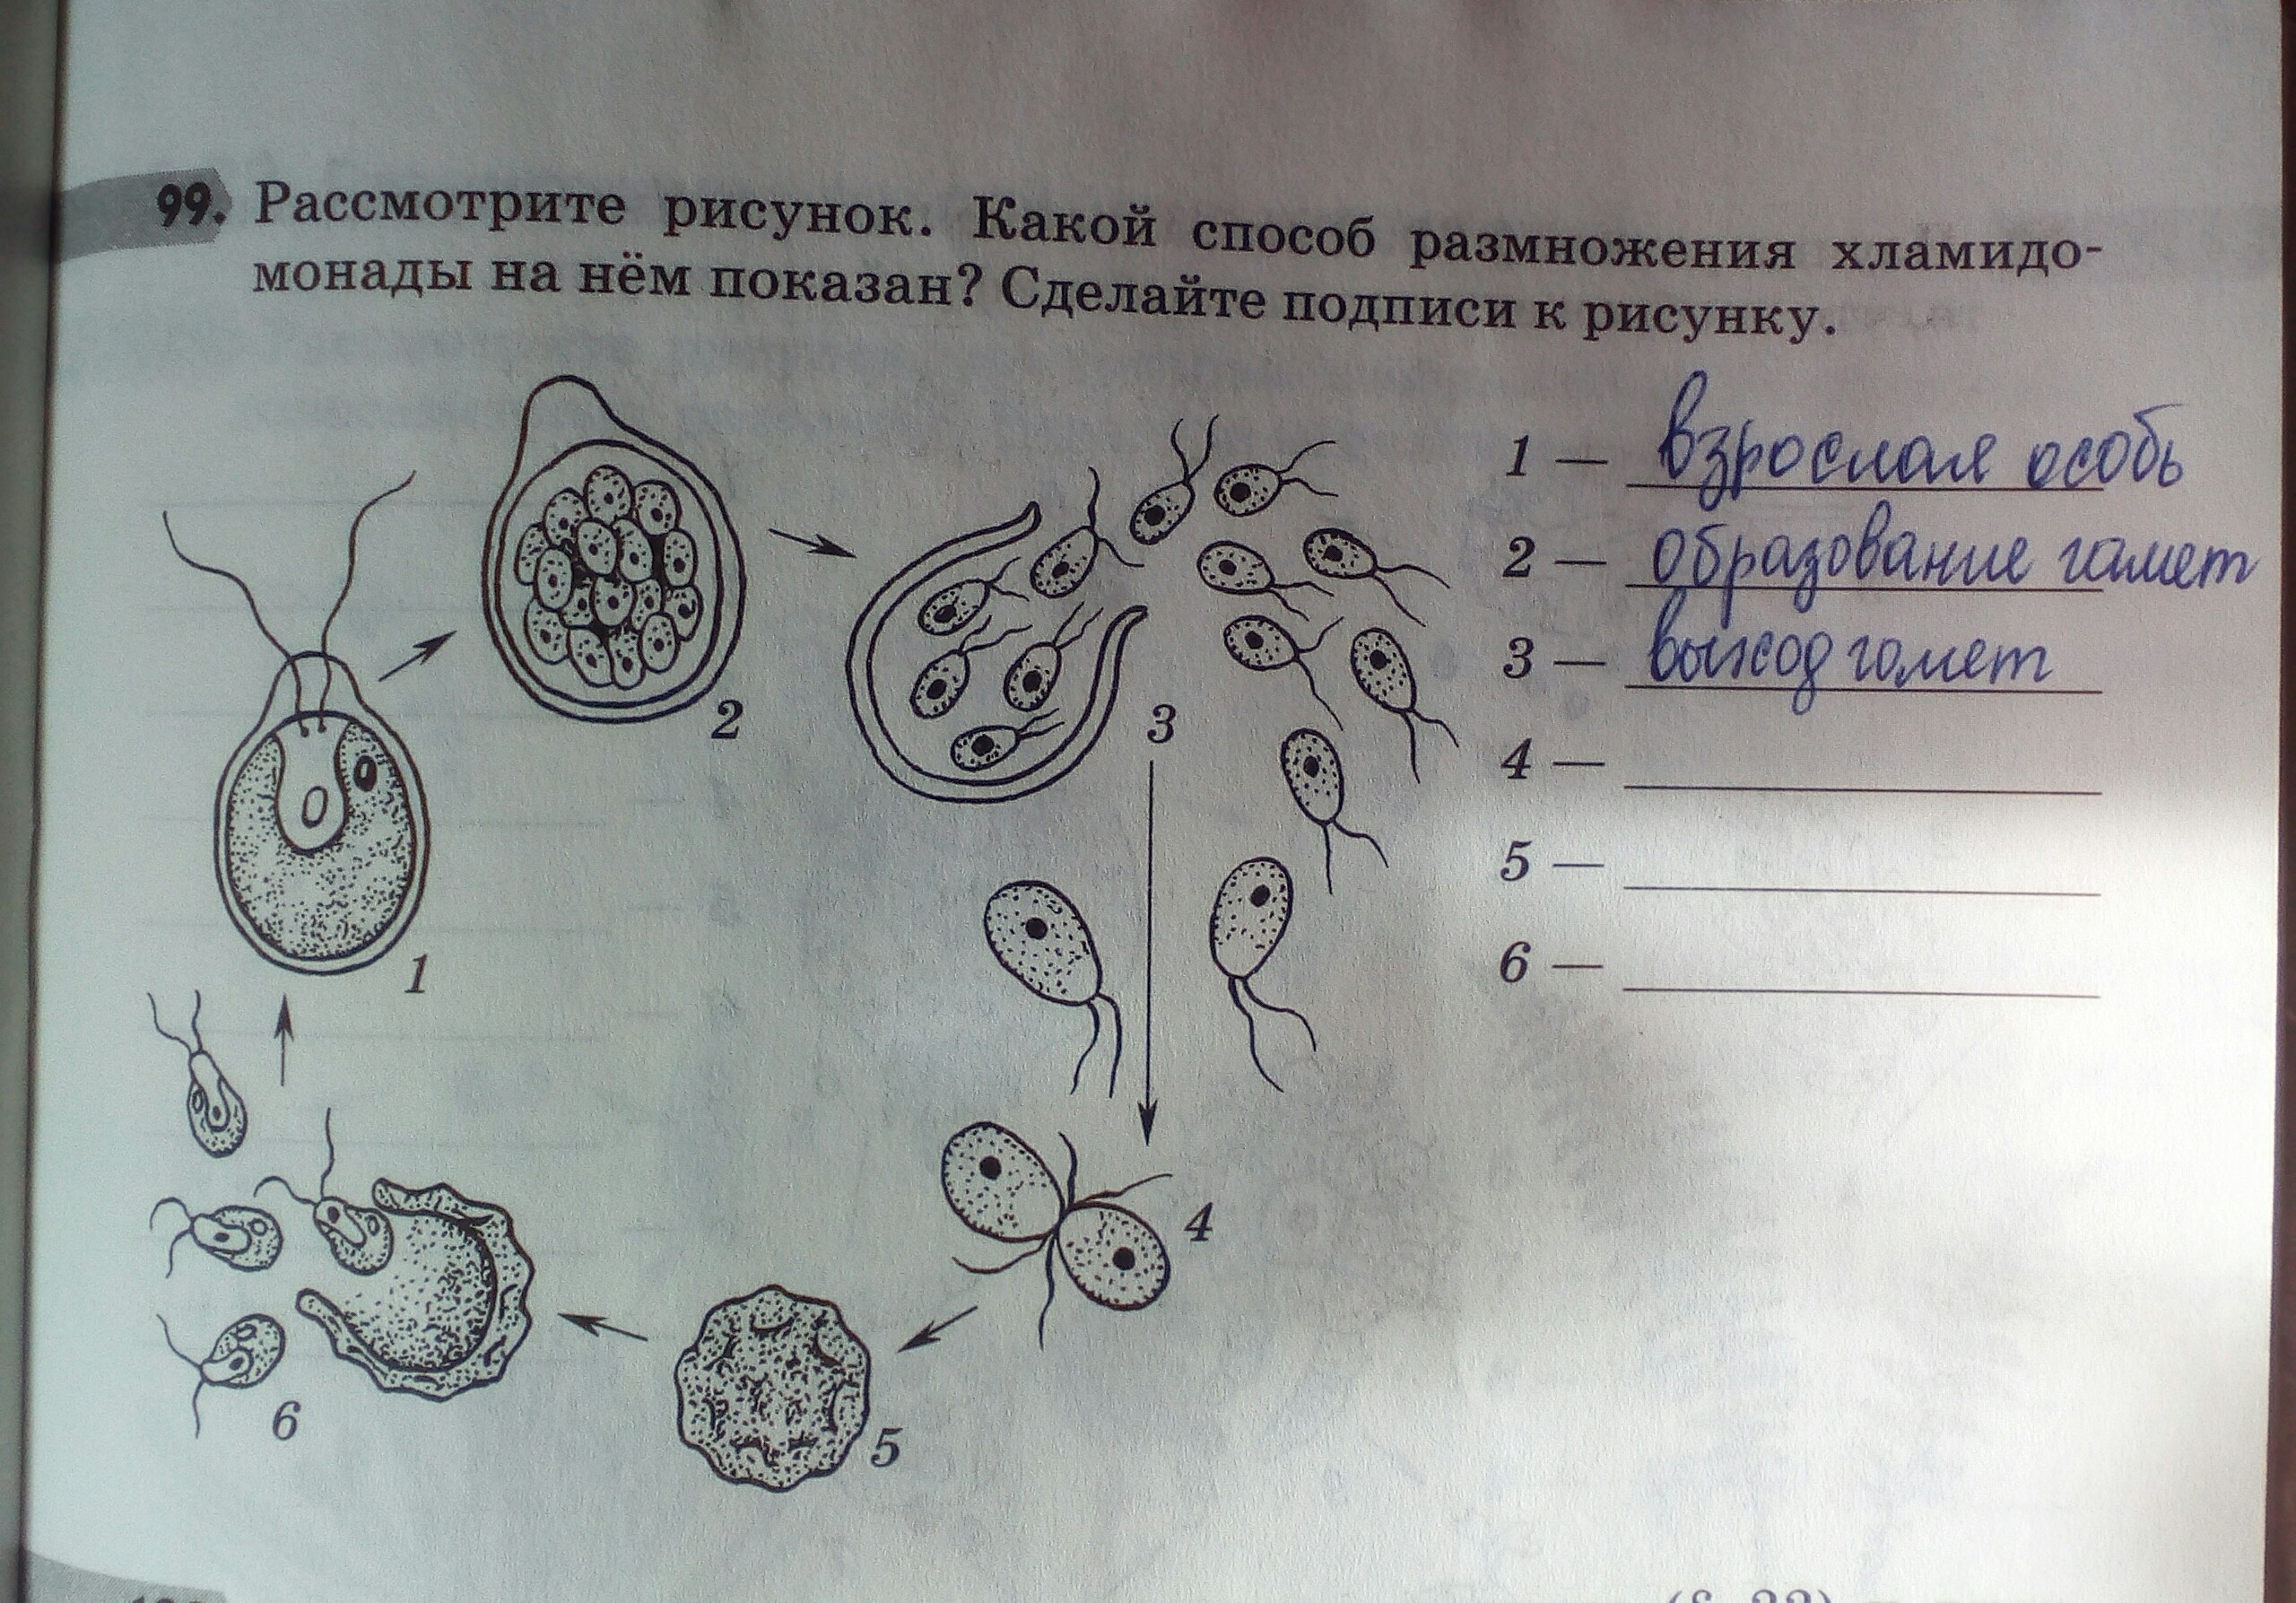 99. Рассмотрите рисунок. Какой способ размножения хламидо-
монады на нём показан? Сделайте подписи к рисунку.
1 — взрослая особь
2 — образование гамет
3 — выход гамет
4 —
5 —
6 —
2
3
1
4
6
5